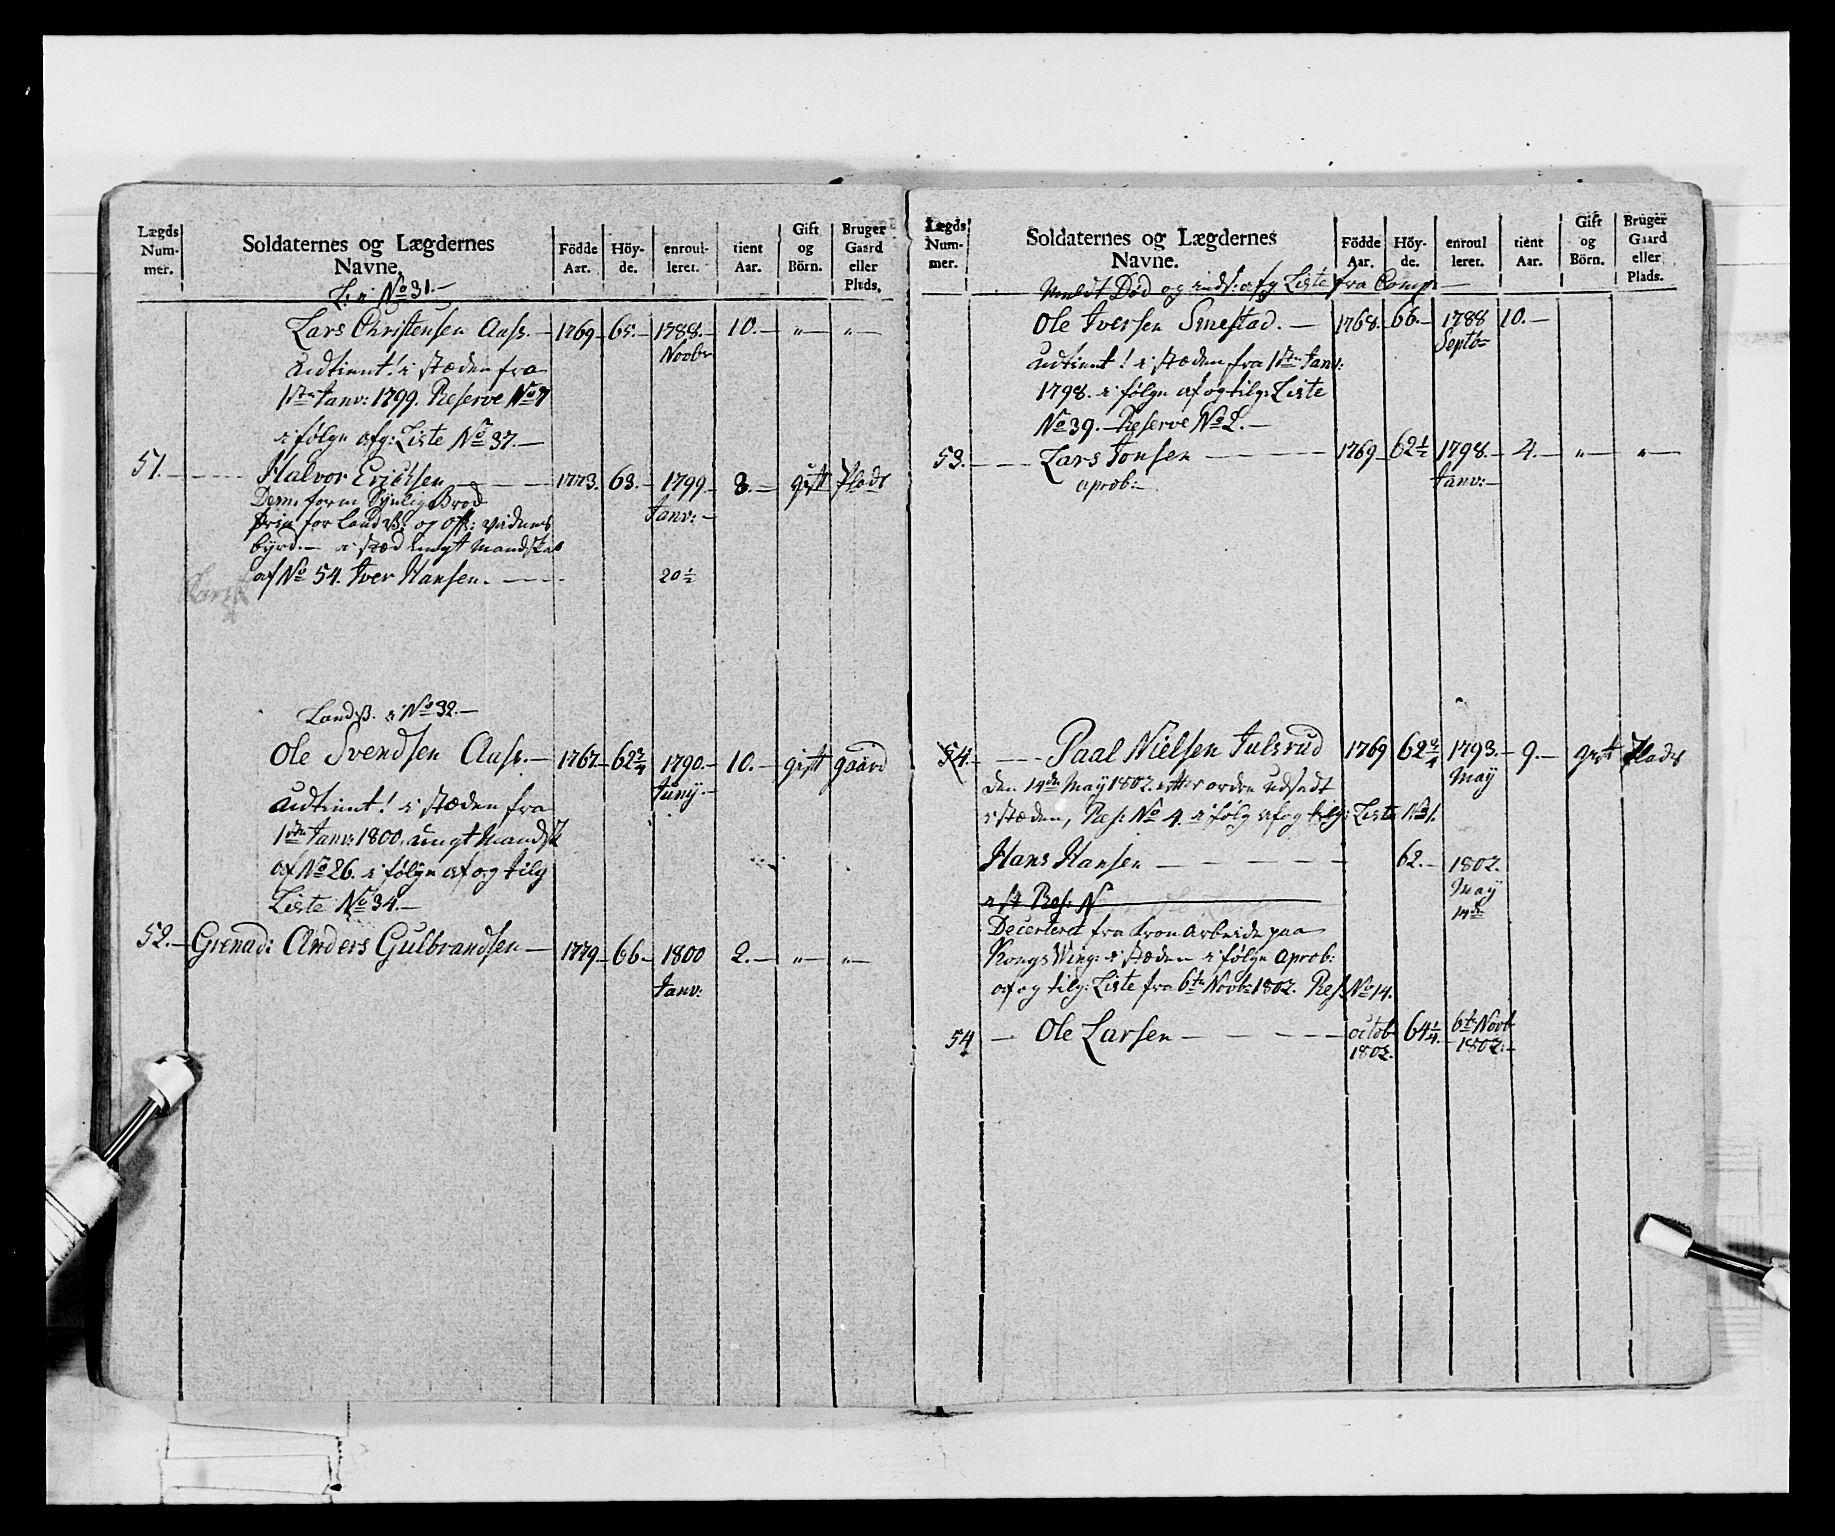 Lægds Num- mer.
Soldaternes og Lægdernes Navne.
Födde Aar.
Höy- de.
enroul- leret.
tient Aar.
Gift og Börn.
Bruger Gaard eller Plads.
L: i No 31.-
Lars Christensen Aass. - 1769 - 65. - 1788. - 10. - " - " -
Novbr
Udtient! i stæden fra
1ste Janv: 1799. Reserve No 7
i følge afg: Liste No 37. -
51. - Halvor - 1773. 63. - 1799 - 3. - gift Plads
Janv: -
for Landv: og
byrd. - i stæd ungt Mandskab
af No 54. Iver Hansen. - 20 1/2
Landv. i No 32. -
Ole Svendsen Aass. - 1767. - 62 3/4 1790. - 10. - gift gaard
Juny. -
Udtient! i stæden fra
1ste Janv: 1800. ungt Mandsk
af No 26. i følge af og tilg
Liste No 34. -
52. - Grenad: Anders Gulbrandsen - 1779 - 66 - 1800 2. - " - " -
Janv:
Lægds Num- mer.
Soldaternes og Lægdernes Navne.
Födde Aar.
Höy- de.
enroul leret.
tient Aar.
Gift og Börn.
Bruger Gaard eller Plads.
Meldt Død og inds: afg Liste fra Comp: -
Ole Iversen Smestad. - 1768. - 66. - 1788 10. -
Septbr
Udtient! i stæden fra 1ste Janv:
1798. i følge af og tilg: Liste
No 39. - Reserve No 2. -
53. - Lars Jonsen - 1769 - 62 1/2 1798. - 4. - " - " -
aprob: - Janv: -
54. - Paal Nielsen Julsrud 1769 62 3/4 1793. - 9. - gift Plads
May
den 14de May 1802. efter ordre udsadt
i stæden, Res: No 4. i følg af og tilg: Liste No 1.
Hans Hansen - 62. - 1802.
May
14de
i st Res: No
Decertert fra Kron Arbeide paa
Kongs Wing: i stæden i følge aprob:
af og tilg: Liste fra 6te Novb 1802. Res: No 14.
54 - Ole Larsen - octob 64 1/4 6te Novb
1802. - 1802. -